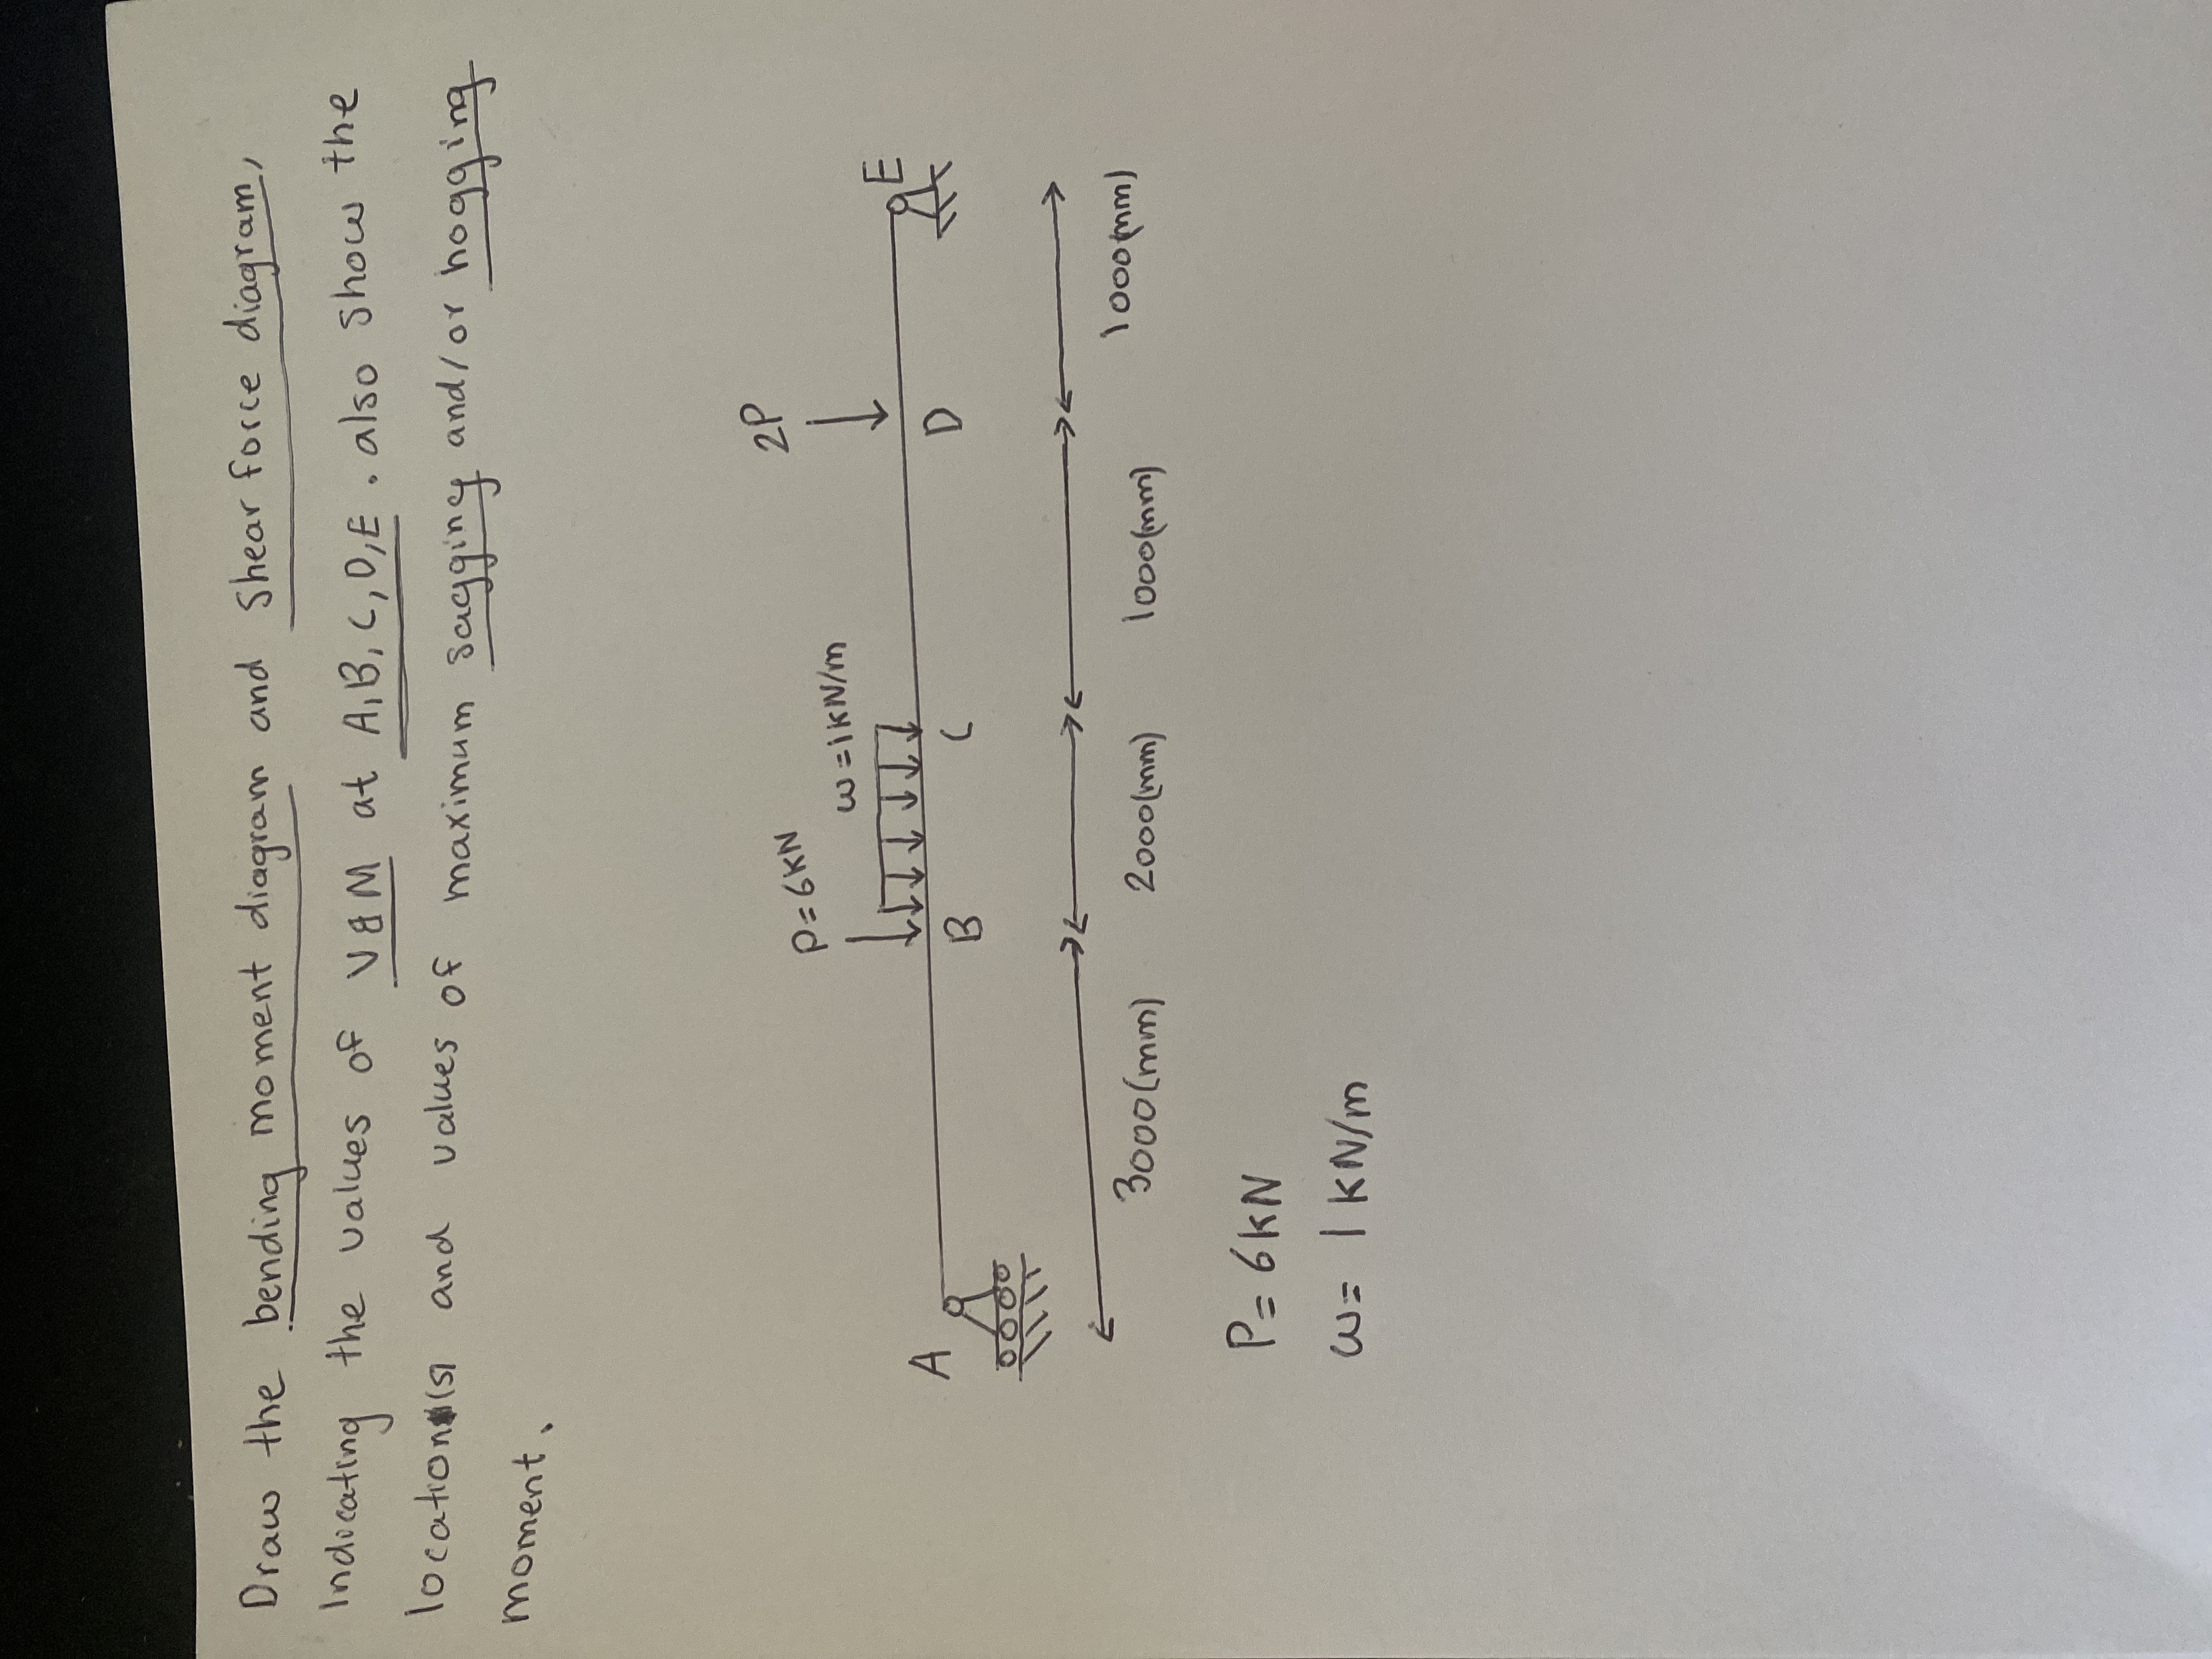 Draw the bending moment diagram and shear force diagram,
Indicating the values of V & M at A,B,C,D,E. also show the
location(s) and values of maximum sagging and/or hogging
moment.
2P
P=6KN
w=1KN/m
A
B
C
D
E
3000(mm) 2000(mm) 1000(mm) 1000(mm)
P= 6KN
w= 1KN/m